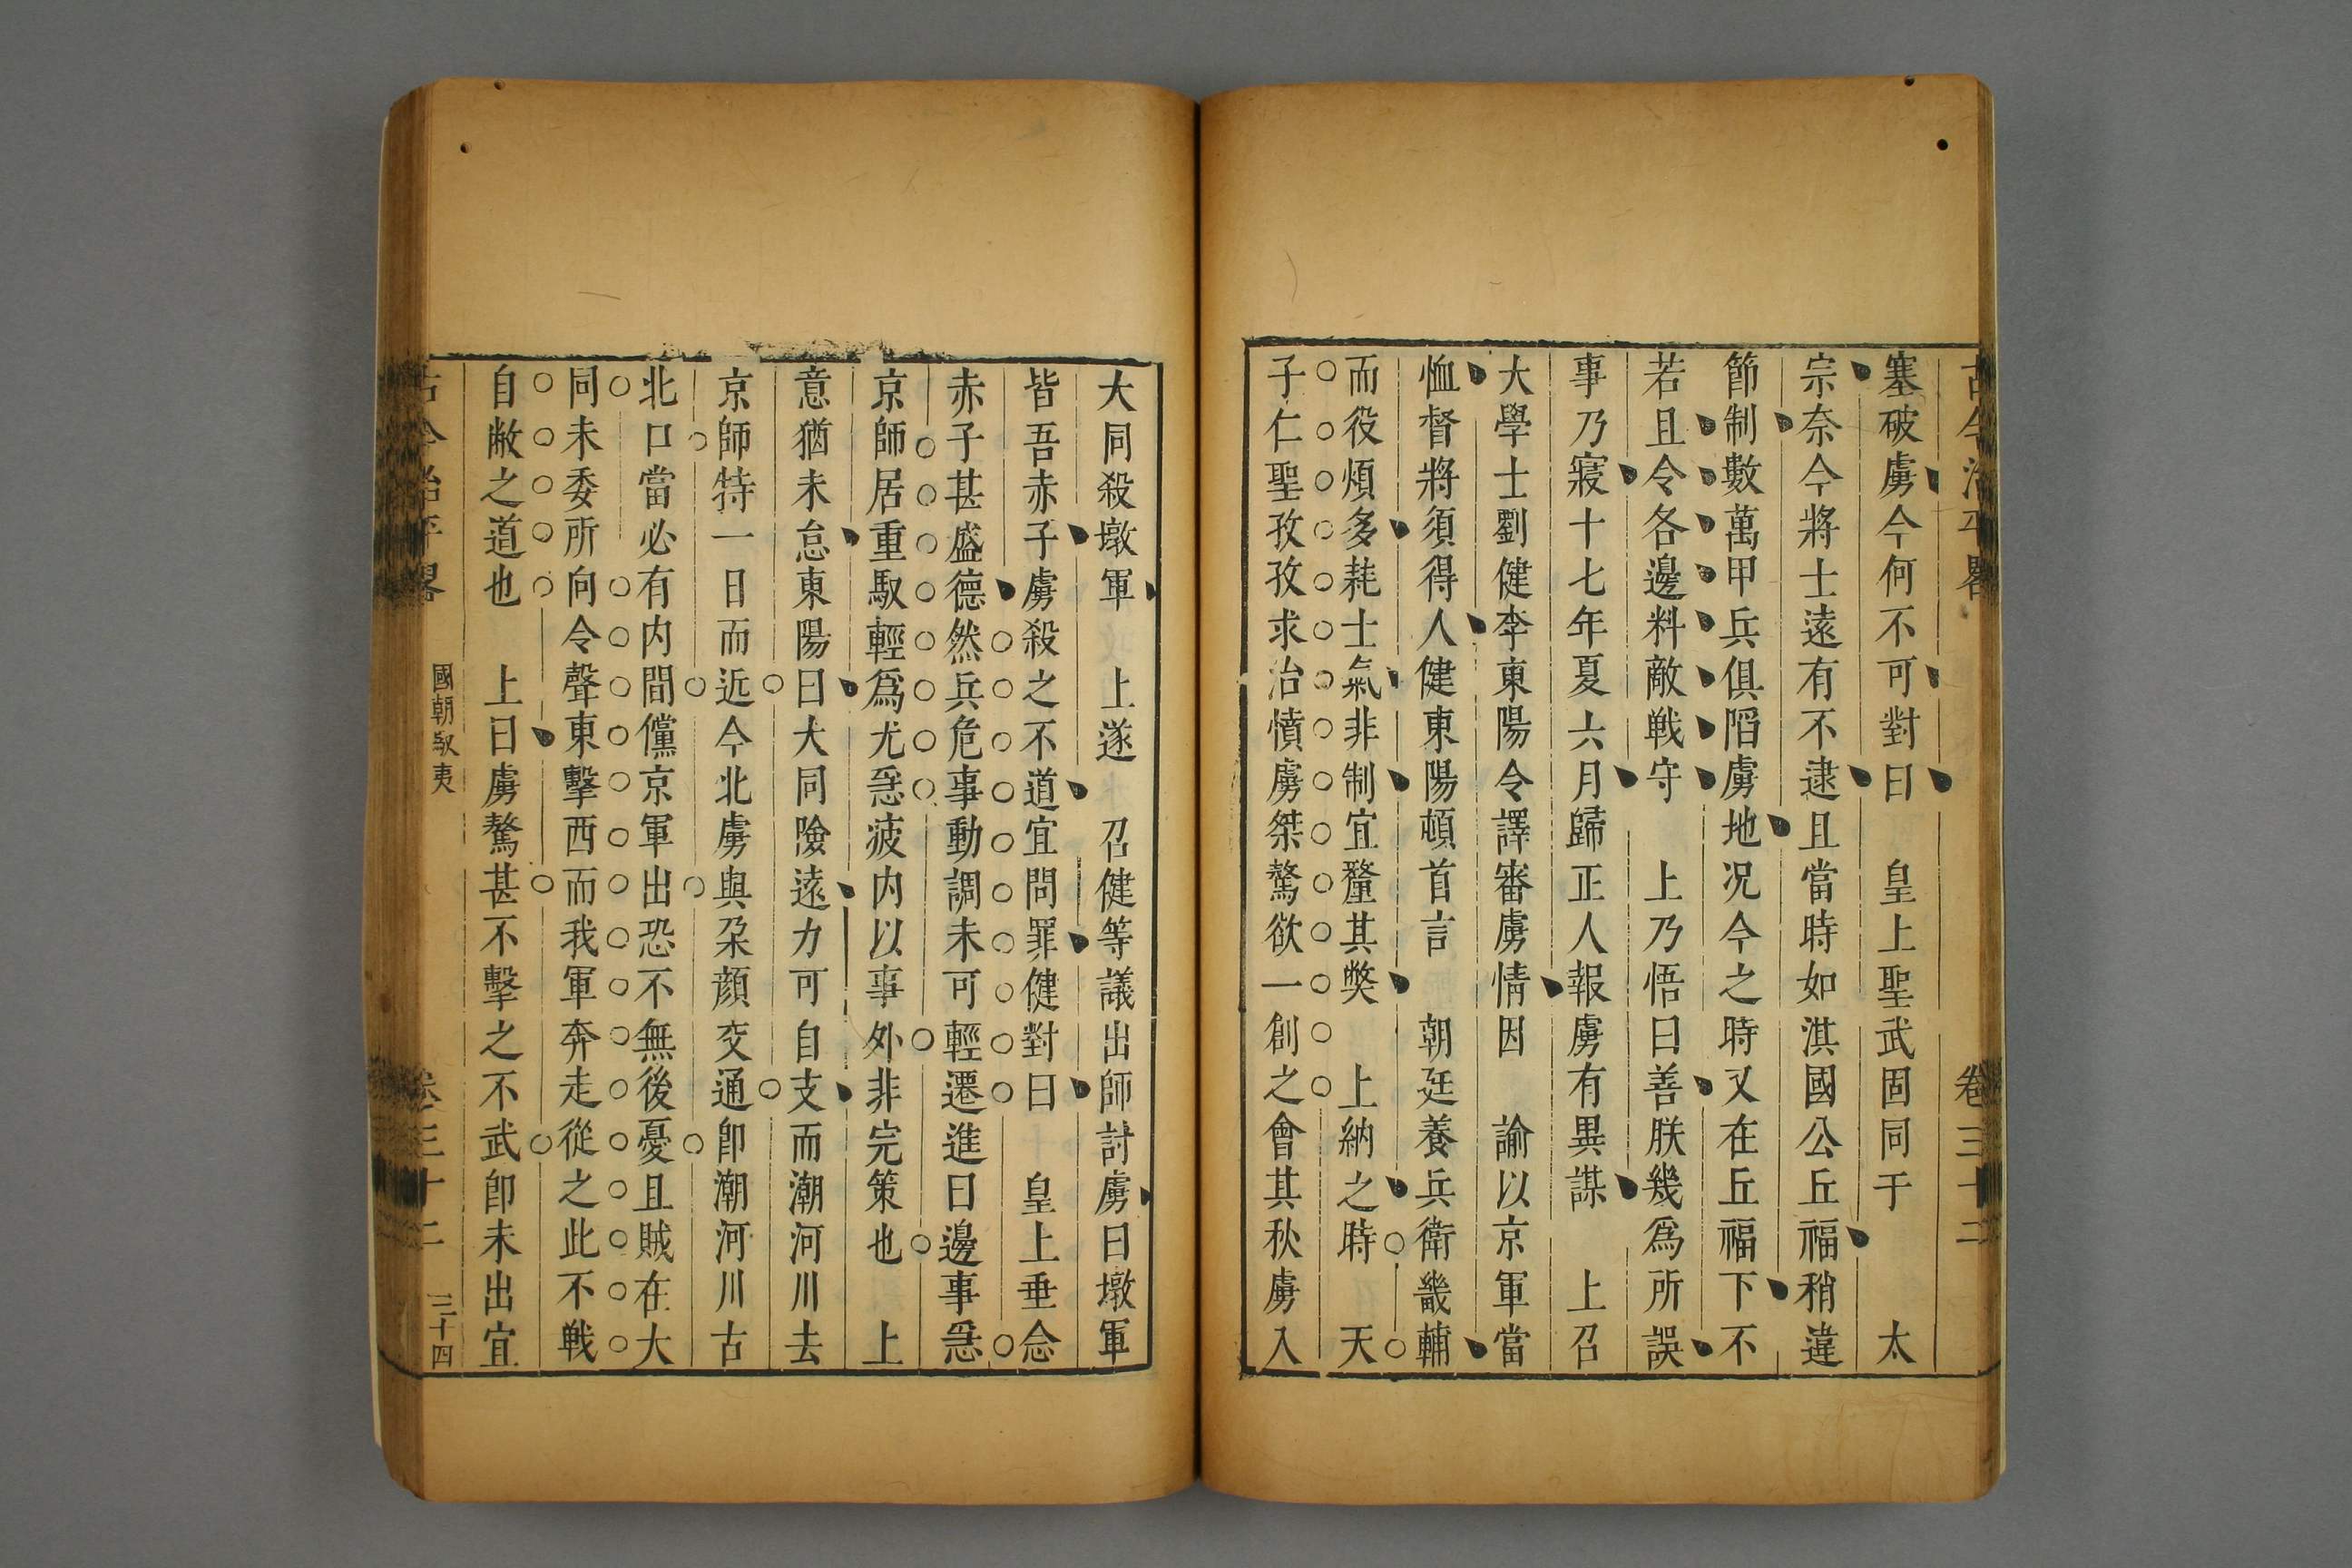 古今治平畧 卷三十二
塞破虜今何不可對曰 皇上聖武固同于 太
宗奈今將士遠有不逮且當時如淇國公丘福稍違
節制數萬甲兵俱陷虜地况今之時又在丘福下不
若且令各邊料敵戦守 上乃悟曰善朕幾爲所誤
事乃寢十七年夏六月歸正人報虜有異謀 上召
大學士劉健李東陽令譯審虜情因 諭以京軍當
恤督將須得人健東陽頓首言 朝廷養兵衛畿輔
而役煩多耗士氣非制宜釐其獘 上納之時 天
子仁聖孜孜求治憤虜桀驁欲一創之會其秋虜入
大同殺墩軍 上遂 召健等議出師討虜曰墩軍
皆吾赤子虜殺之不道宜問罪健對曰 皇上垂念
赤子甚盛德然兵危事動調未可輕遷進曰邊事惡
京師居重馭輕爲尤惡疲内以事外非完策也 上
意猶未怠東陽曰大同險遠力可自支而潮河川去
京師特一日而近今北虜與朶顔交通卽潮河川古
北口當必有内間儻京軍出恐不無後憂且賊在大
同未委所向令聲東擊西而我軍奔走從之此不戦
自敝之道也 上曰虜驁甚不擊之不武卽未出宜
古今治平畧 國朝馭夷 卷三十二 三十四